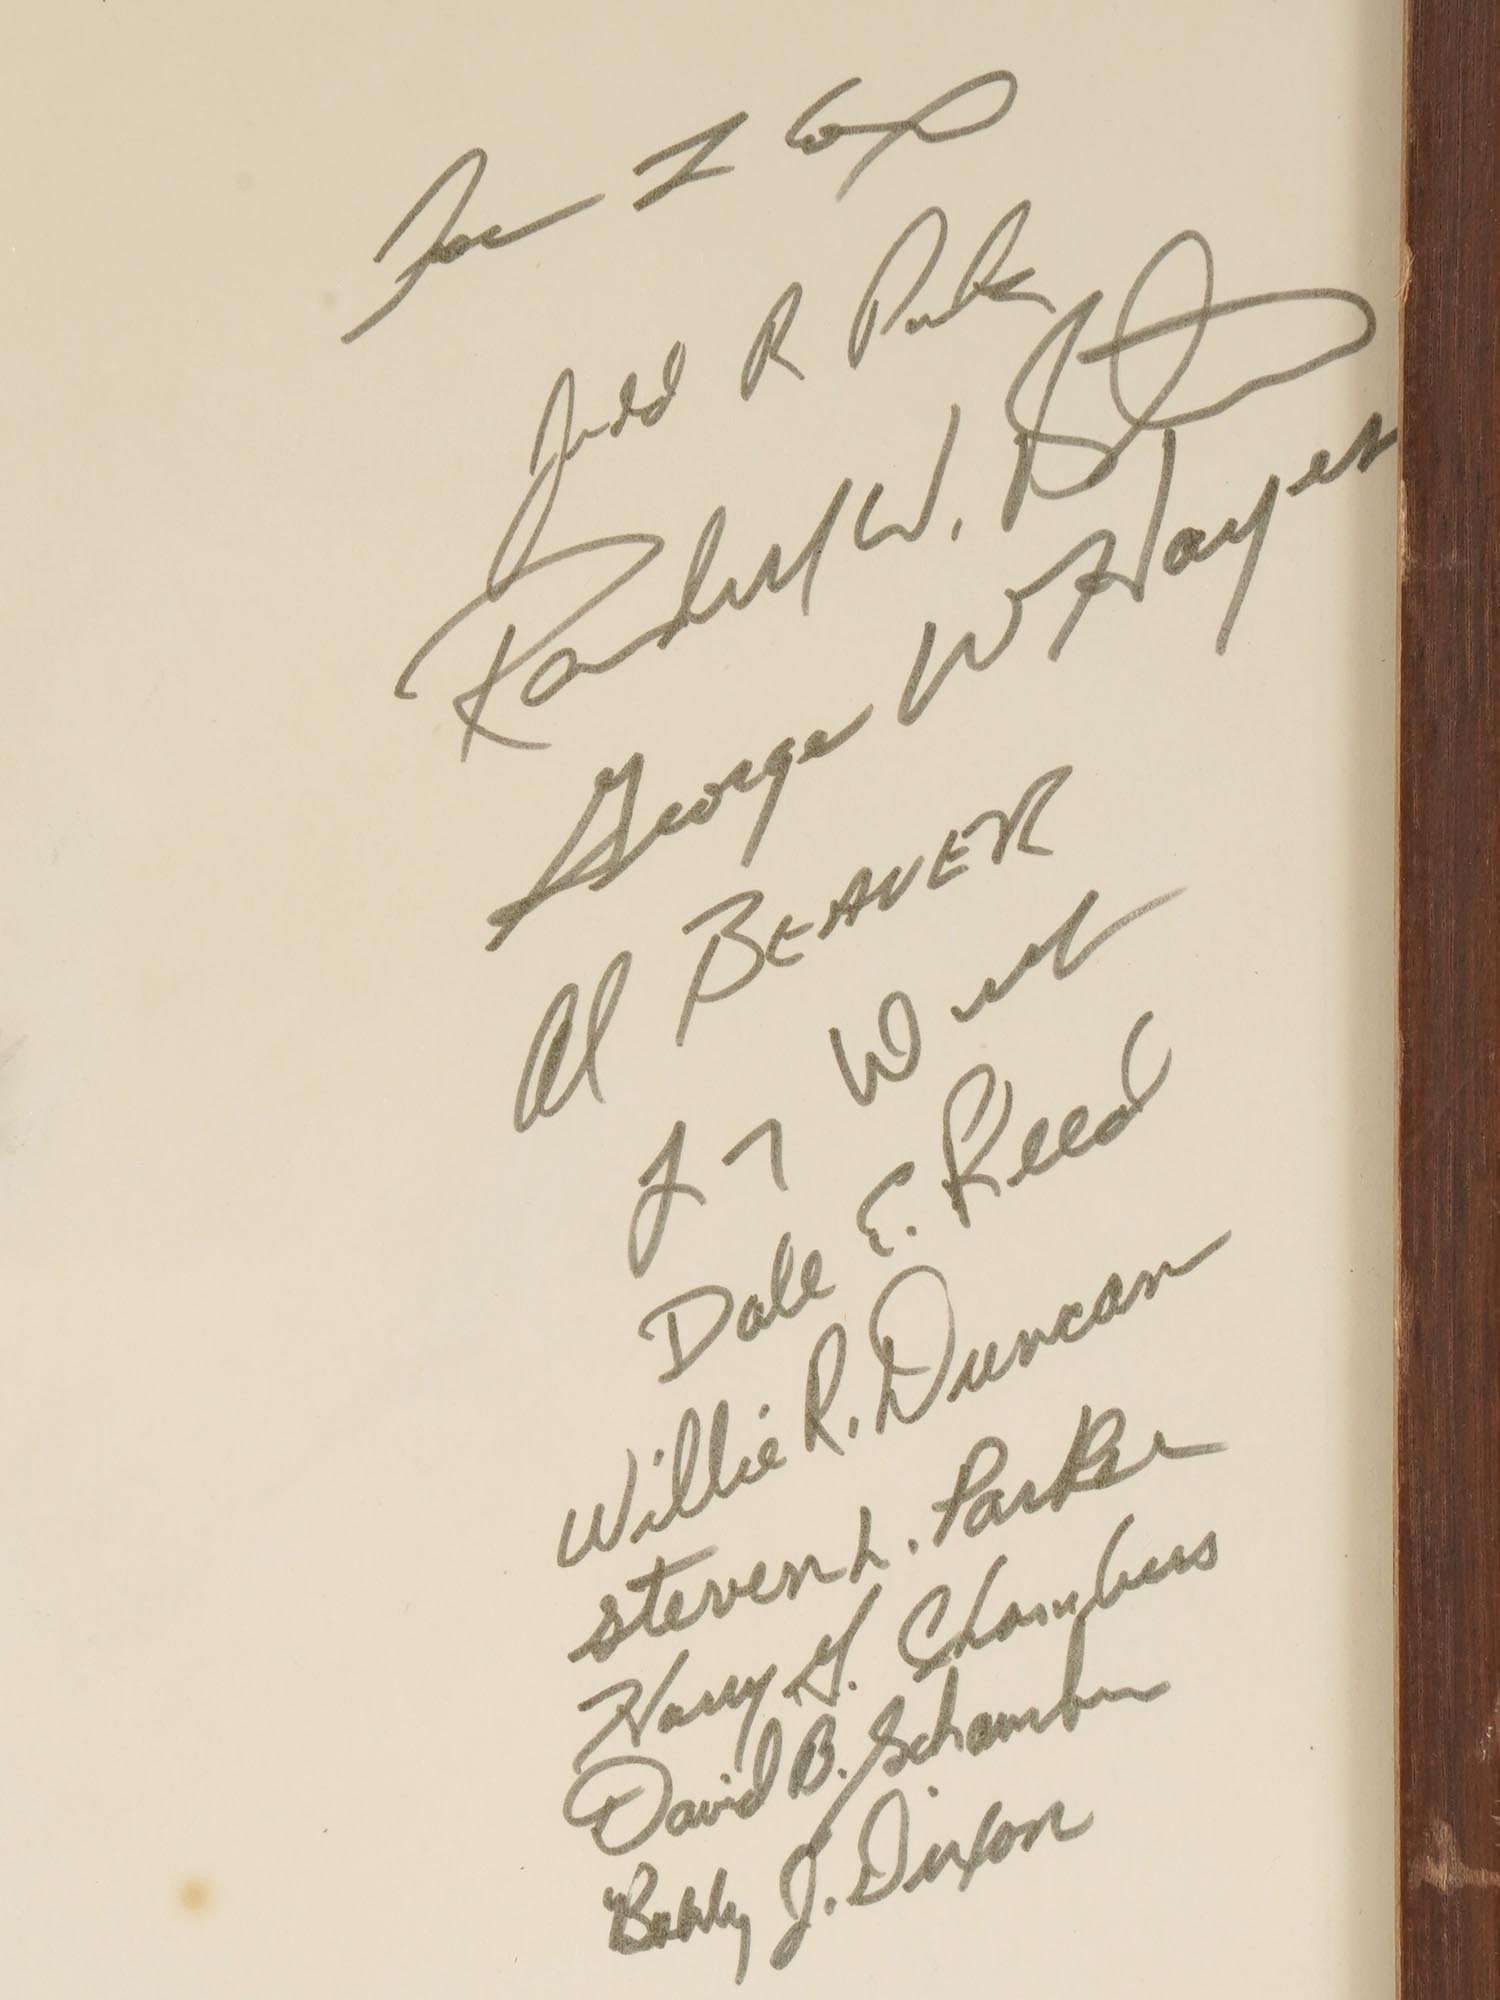 Judd R Parker
Randall W.
George W Hayes
Al BEAVER
West
Dale E. Reed
Willie R. Duncan
Steven L. Parker
Harry G. Chambers
David B.
Bobby J. Dixon